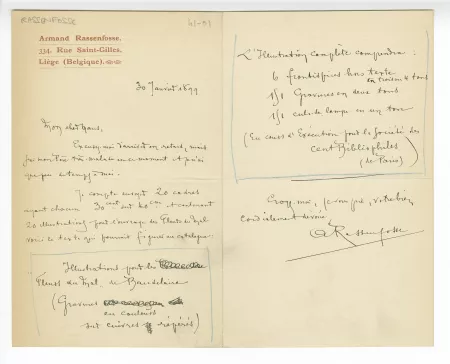 RASSENFOSSE
Armand Rassenfosse.
334, Rue Saint-Gilles.
Liège (Belgique).
30 Janvier 1899
Mon cher
Excusez moi d'arriver en retard, mais
je un très en ce moment et
que peu
Je compte envoyer 20 cadres
ayant chacun 30 cent sur 40 cm et contenant
20 illustrations pour l'ouvrage des Fleurs du Mal
voici le texte qui pourrait figurer au catalogue.
Illustrations pour les
Fleurs du Mal. de Baudelaire
(Gravures
en couleurs
sur cuivres repérés)
L'Illustration complète comprendra :
6 frontispices hors texte
en trois tons
Gravures en deux tons
culs de lampe en un ton
(En cours d'Exécution pour la Société des
Cent Bibliophiles
(de Paris)
Croyez moi, je vous prie, votre bien
Cordialement dévoué
ARassenfosse